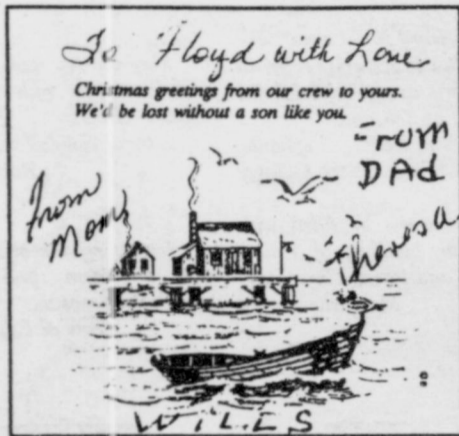 To Floyd with Love
Christmas greetings from our crew to yours.
We'd be lost without a son like you.
From
DAd
From
Mom
Theresa
WILLS